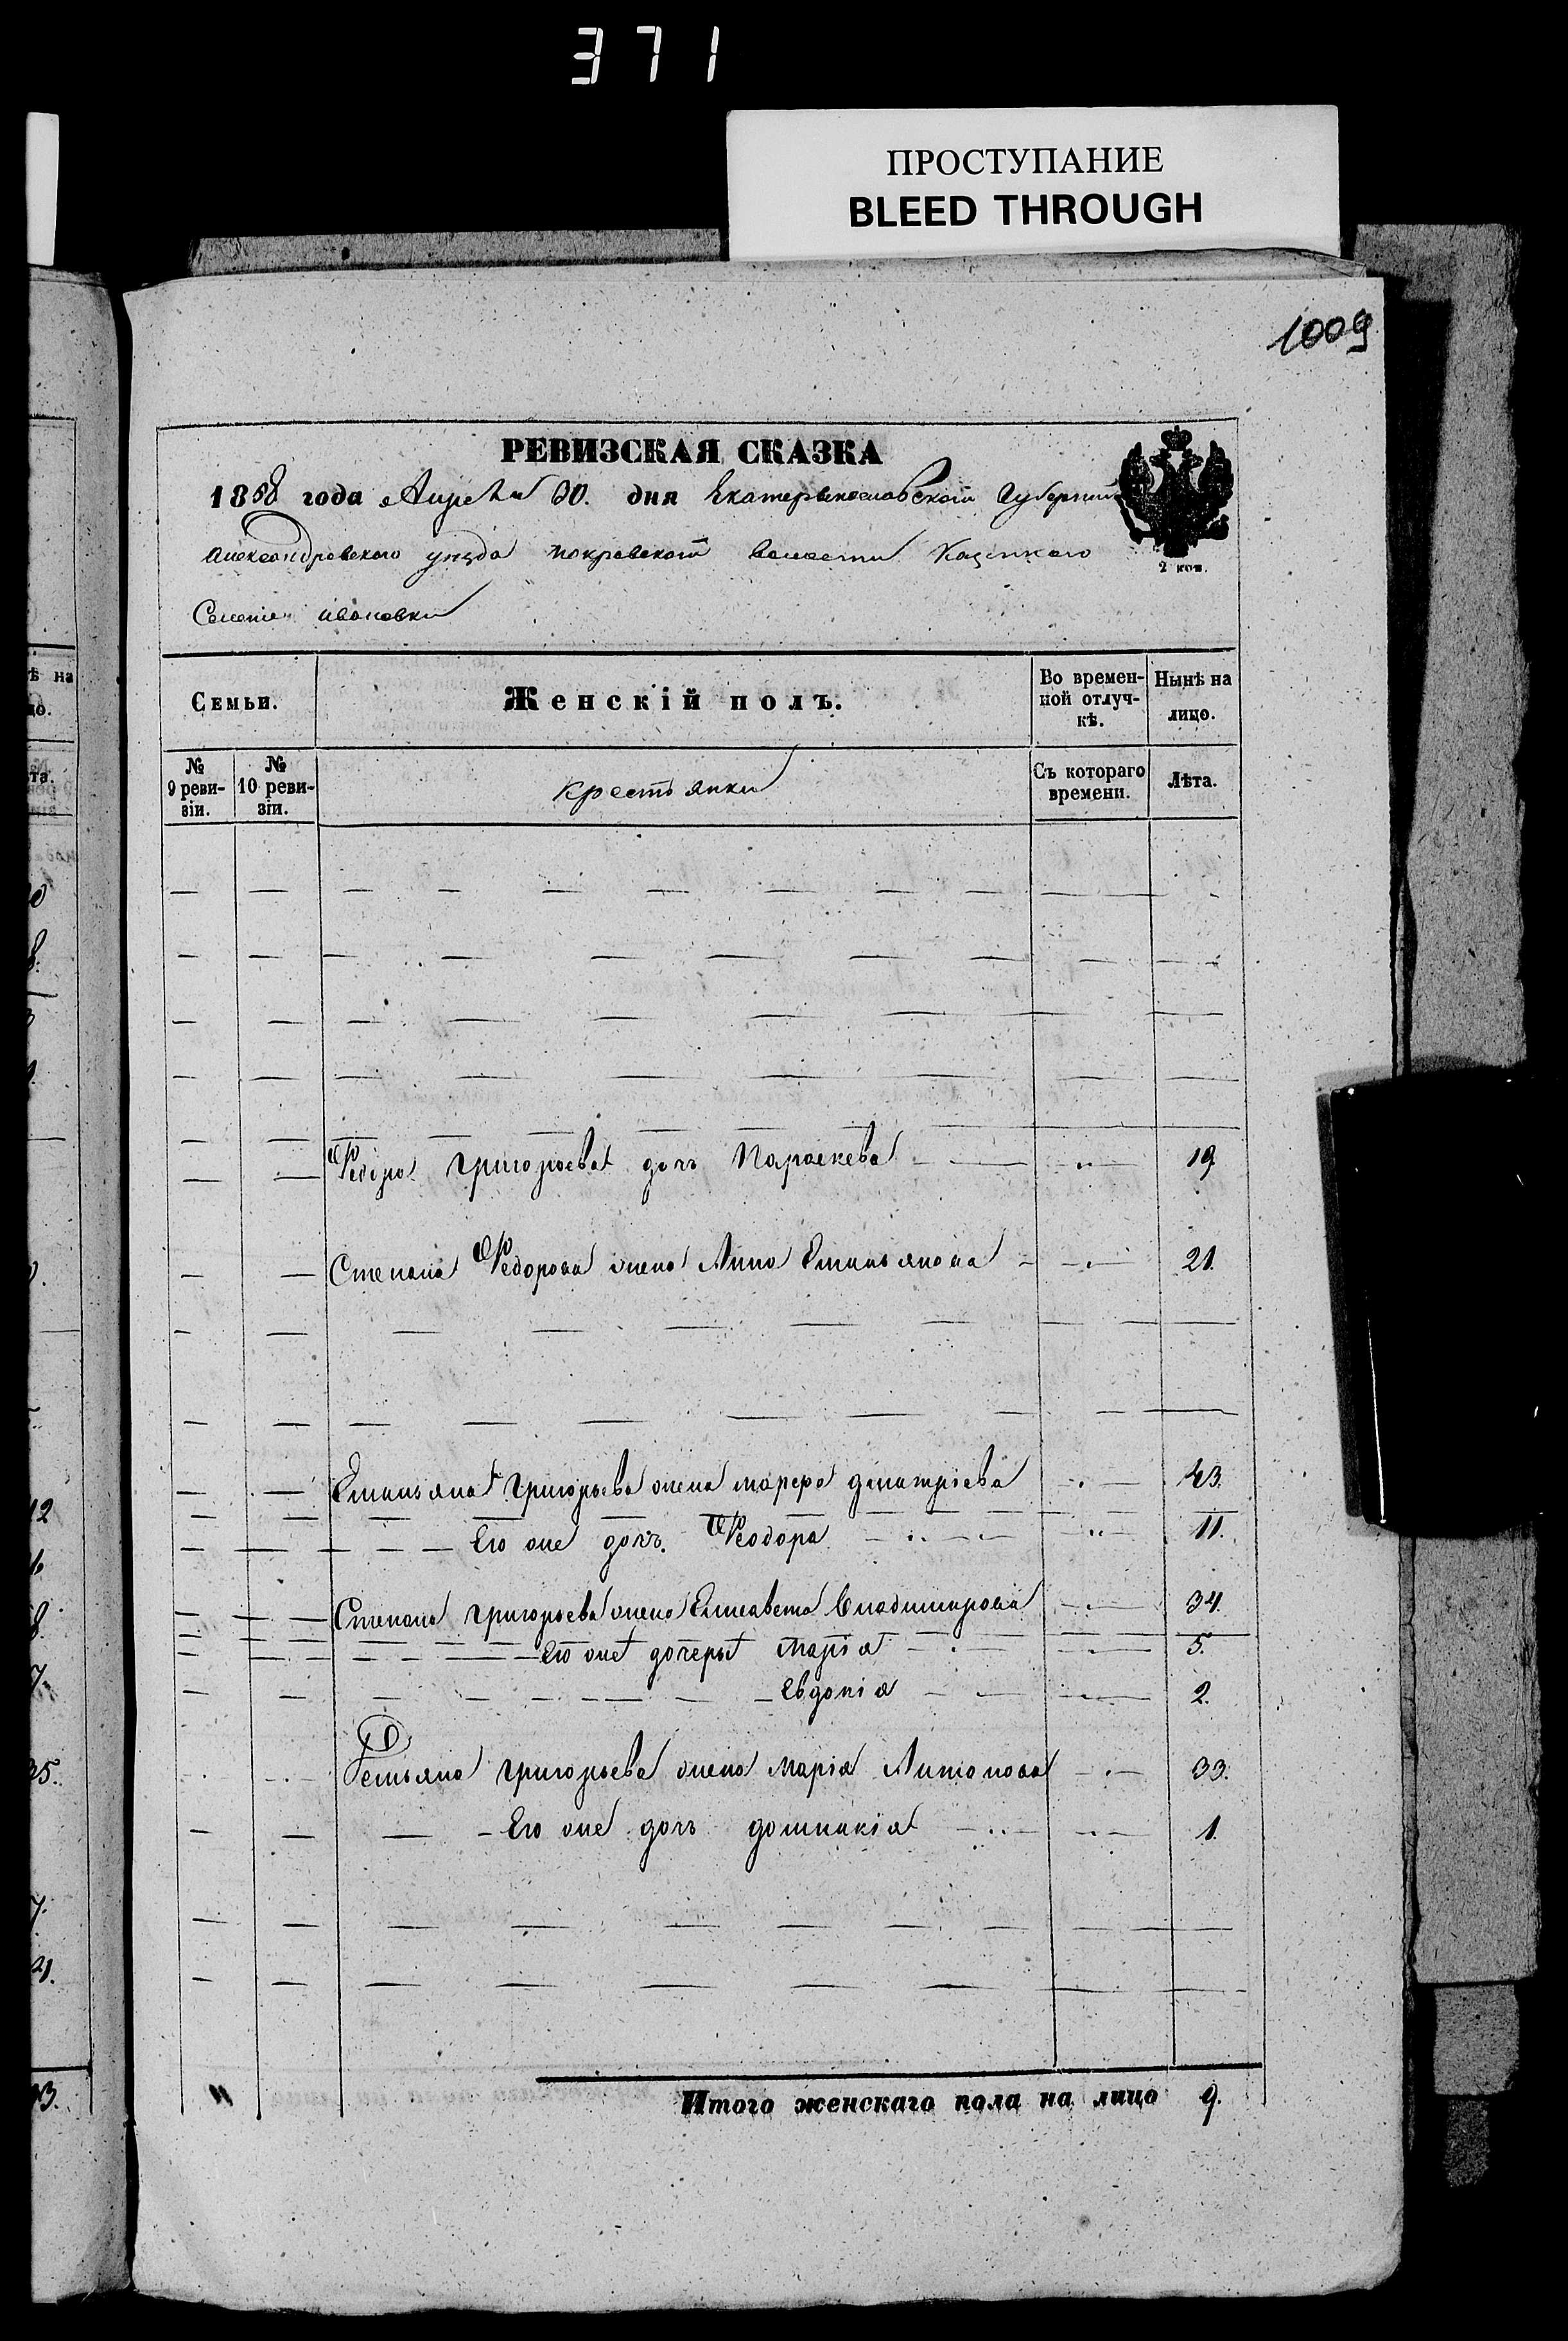 371
ПРОСТУПАНИЕ
BLEED THROUGH
1009
РЕВИЗСКАЯ СКАЗКА
1858 года Апреля 30. дня Екатериносласвской Губернии
Александровского уѣзда покровской волости Казеннаго
Селенія ивановки
2 коп.
Семьи. Женскій полъ. Во времен-ной отлуч-кѣ. Нынѣ на лицо.
№ 9 реви-зіи. № 10 реви-зіи. крестьянки Съ котораго времени. Лѣта.
Федора григорьева дочь Параскева 19
Степана Федорова жена Анна Емильянова 21.
Емильяна григорьева жена марфа дмитріева 43.
Его же дочь. Феодора 11.
Степана григорьева жена Елисавета Владимирова 34.
Его же дочеры Марія 5.
Евдокія 2.
григорьева жена Марія Антонова 33.
Его же дочь домникія 1.
Итого женскаго пола на лицо 9.